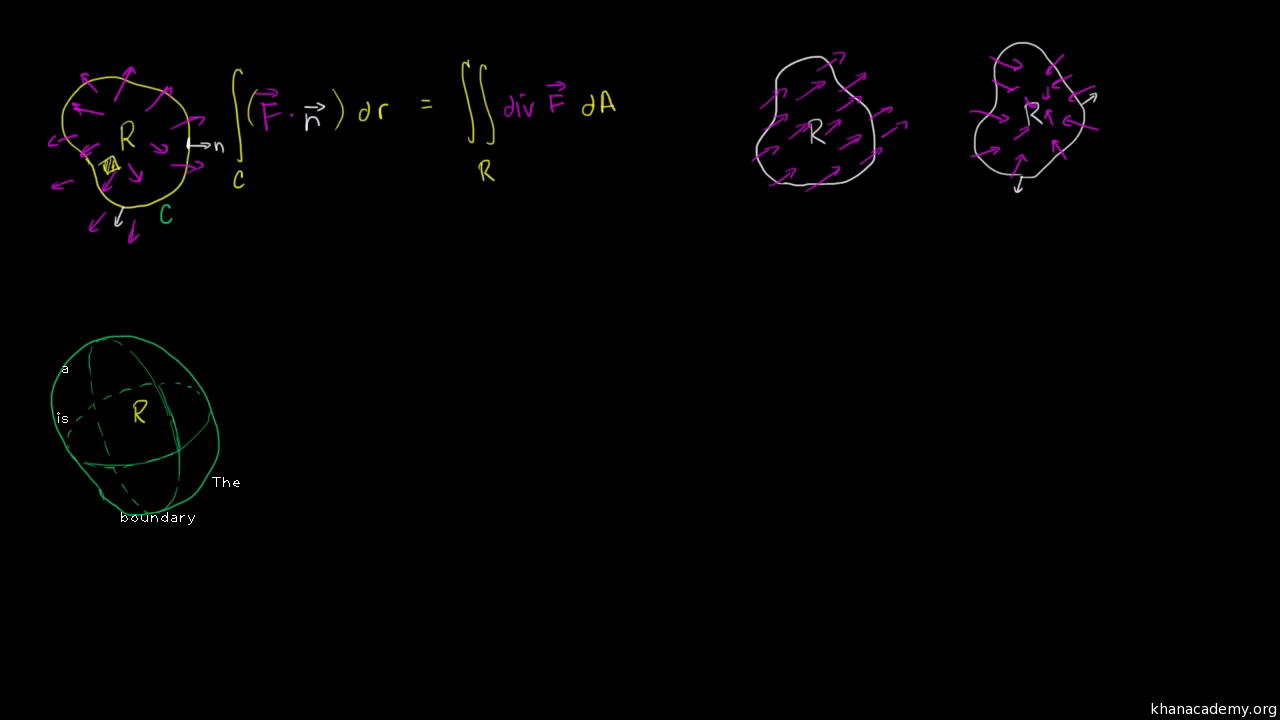 R
n
C
∫_C (F⃗ · n⃗) dr = ∬_R div F⃗ dA
R
R
a
is
R
The
boundary
khanacademy.org